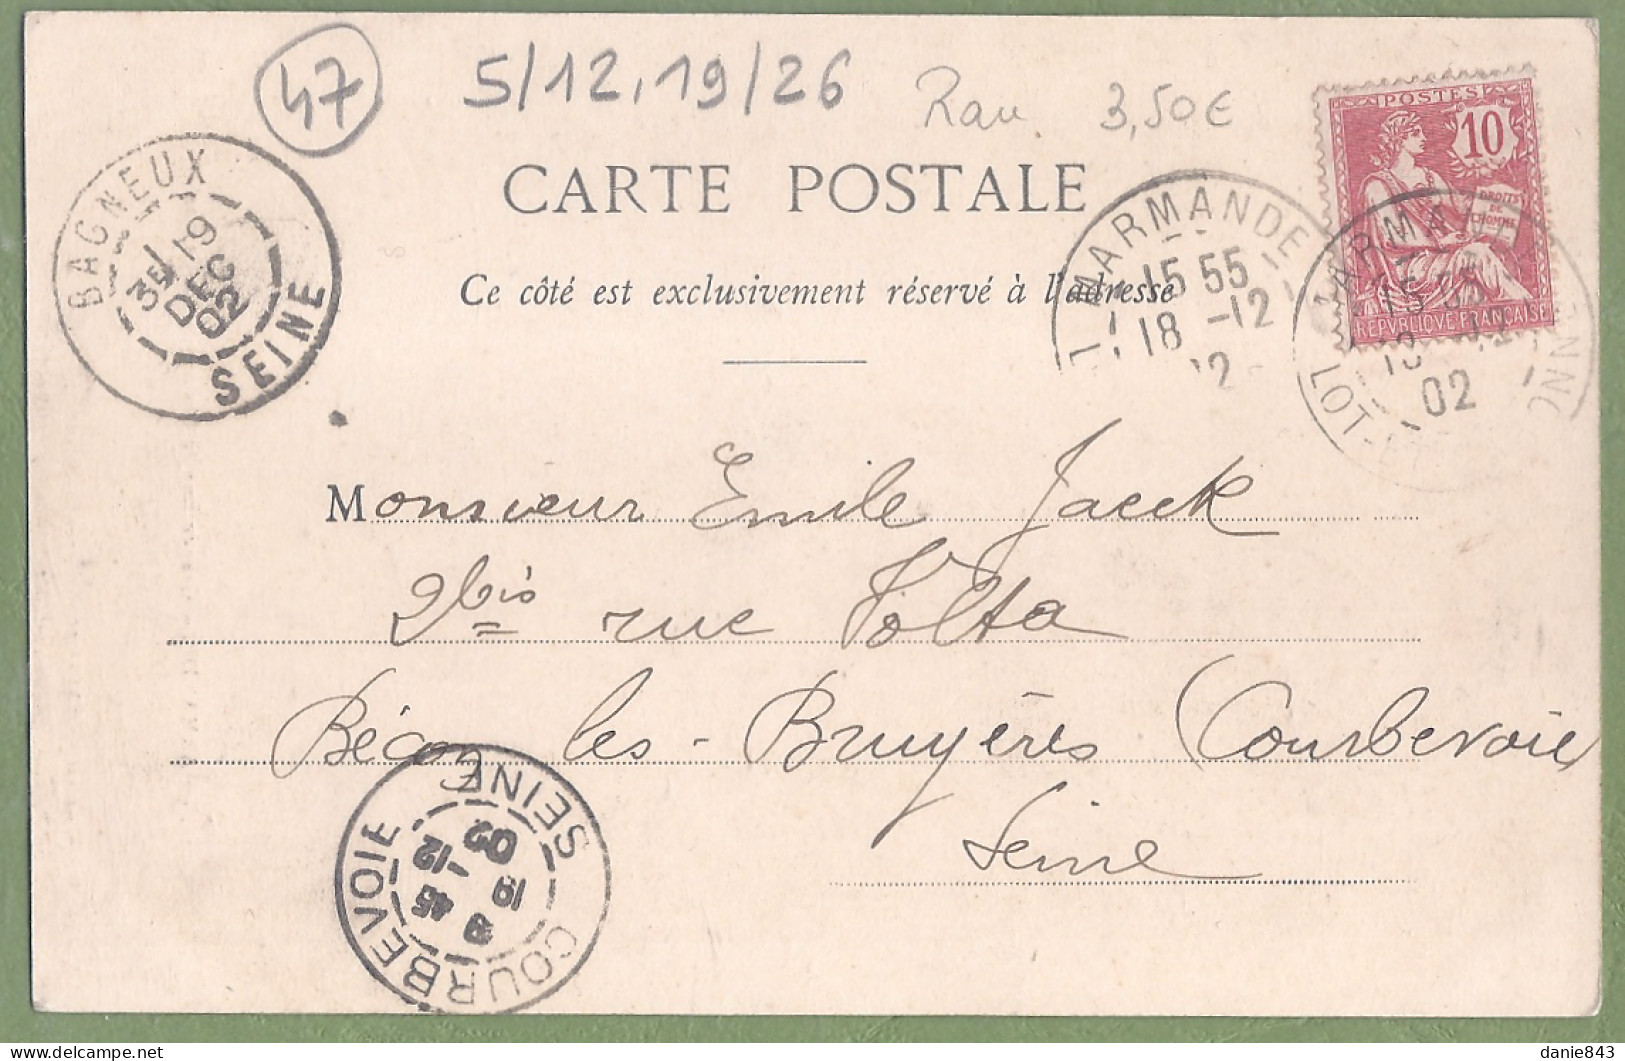 47
5/12,19/26
Rau. 3,50€
POSTES
10
DROITS
DE
L'HOMME
REPUBLIQUE FRANÇAISE
CARTE POSTALE
BAGNEUX
19
DEC
02
SEINE
MARMANDE
15 55
18 -12
02
LOT-
Ce côté est exclusivement réservé à l'adresse
Monsieur Emile Jaeck
2bis rue Volta
Bécon les-Bruyères (Courbevoie
Seine
COURBEVOIE
SEINE
8 45
19 -12
02
delcampe.net
danie843